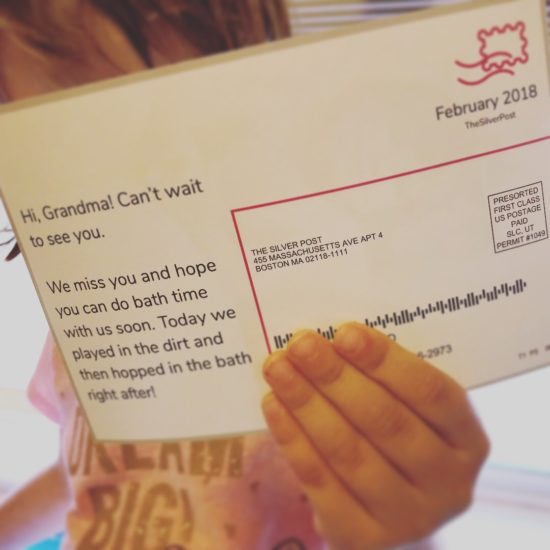 February 2018
TheSilverPost
Hi, Grandma! Can't wait
to see you.
We miss you and hope
you can do bath time
with us soon. Today we
played in the dirt and
then hopped in the bath
right after!
THE SILVER POST
455 MASSACHUSETTS AVE APT 4
BOSTON MA 02118-1111
PRESORTED
FIRST CLASS
US POSTAGE
PAID
SLC, UT
PERMIT #1049
-2973
DREAM
BIG